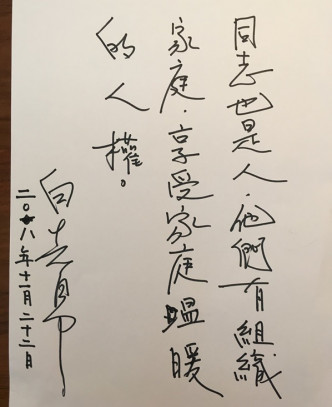 同志也是人，他們有組織
家庭，享受家庭溫暖
的人權。
白先勇
二〇一八年十一月二十二日